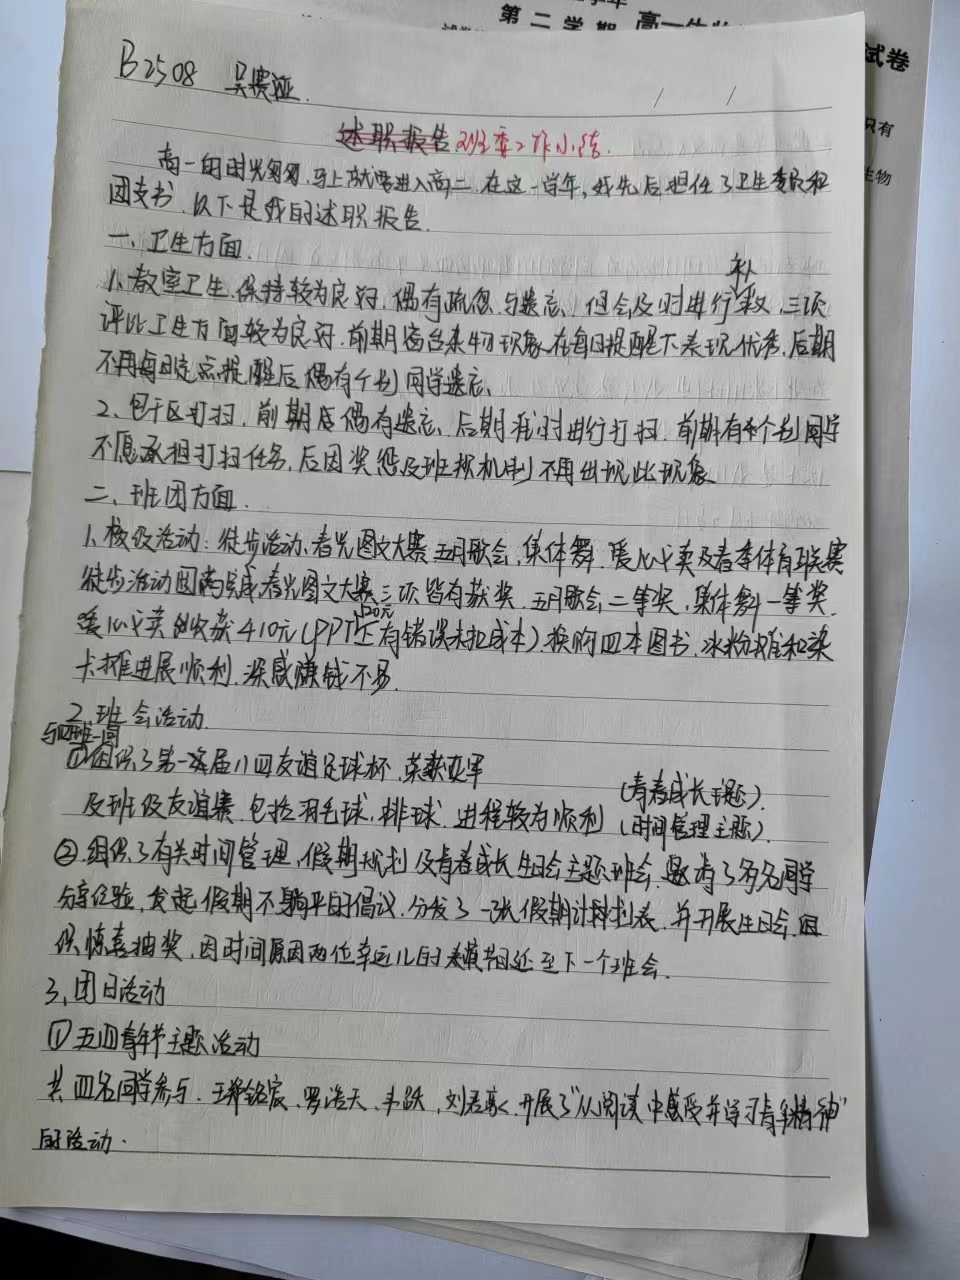 第二学期 高一生物
试卷
只有
生物
B2508 吴赛
/ /
述职报告 班委工作小结
高一的时光匆匆,马上就要进入高二,在这一学年,我先后担任了卫生委员和
团支书,以下是我的述职报告.
一、卫生方面.
1、教室卫生,保持较为良好,偶有疏忽与遗忘,但会及时进行补救,三项
评比卫生方面较为良好,前期窗台杂物现象在每日提醒下表现优秀,后期
不再每日定点提醒后偶有个别同学遗忘.
2、包干区打扫,前期居偶有遗忘、后期准时进行打扫,前期有个别同学
不愿承担打扫任务,后因奖惩及班规机制不再出现此现象
二、班团方面.
1、校级活动:徒步活动、春光图文大赛五月歌会,集体舞、爱心义卖及春季体育联赛
徒步活动圆满完成,春光图文大赛三项皆有获奖,五月歌会二等奖,集体舞一等奖.
120元
爱心义卖收获410元(PPT上有错误未扣成本)换购四本图书,冰粉摊和染
卡摊进展顺利,深感赚钱不易.
2、班会活动
与四班一同
①组织了第一届八四友谊足球杯,荣获亚军
及班级友谊赛,包括羽毛球,排球,进程较为顺利
(青春成长主题).
(时间管理主题).
②组织了有关时间管理,假期规划及青春成长生日会主题班会,邀请了多名同学
分享经验,发起假期不躺平的倡议,分发了一张假期计划表,并开展生日会,组
织惊喜抽奖,因时间原因两位幸运儿的表演节目延至下一个班会.
3、团日活动
①五四青年节主题活动
共四名同学参与,王铭宸、罗浩天、韦跃,刘,开展了“从阅读中感受并学习青年精神”
的活动.